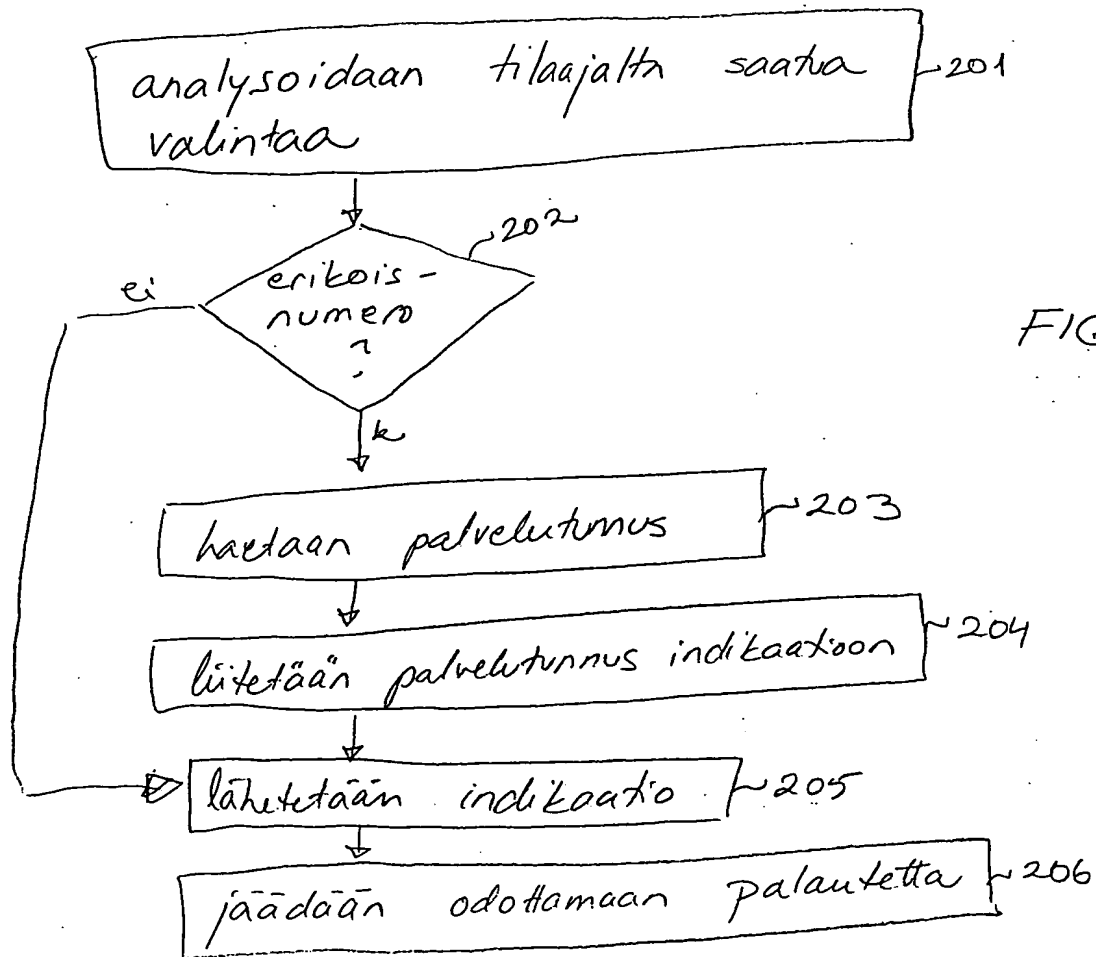 analysoidaan tilaajalta saatua 201
valintaa
202
erikois-
numero
?
ei
FIG
k
haetaan palvelutunnus 203
liitetään palvelutunnus indikaatioon 204
lähetetään indikaatio 205
jäädään odottamaan palautetta 206